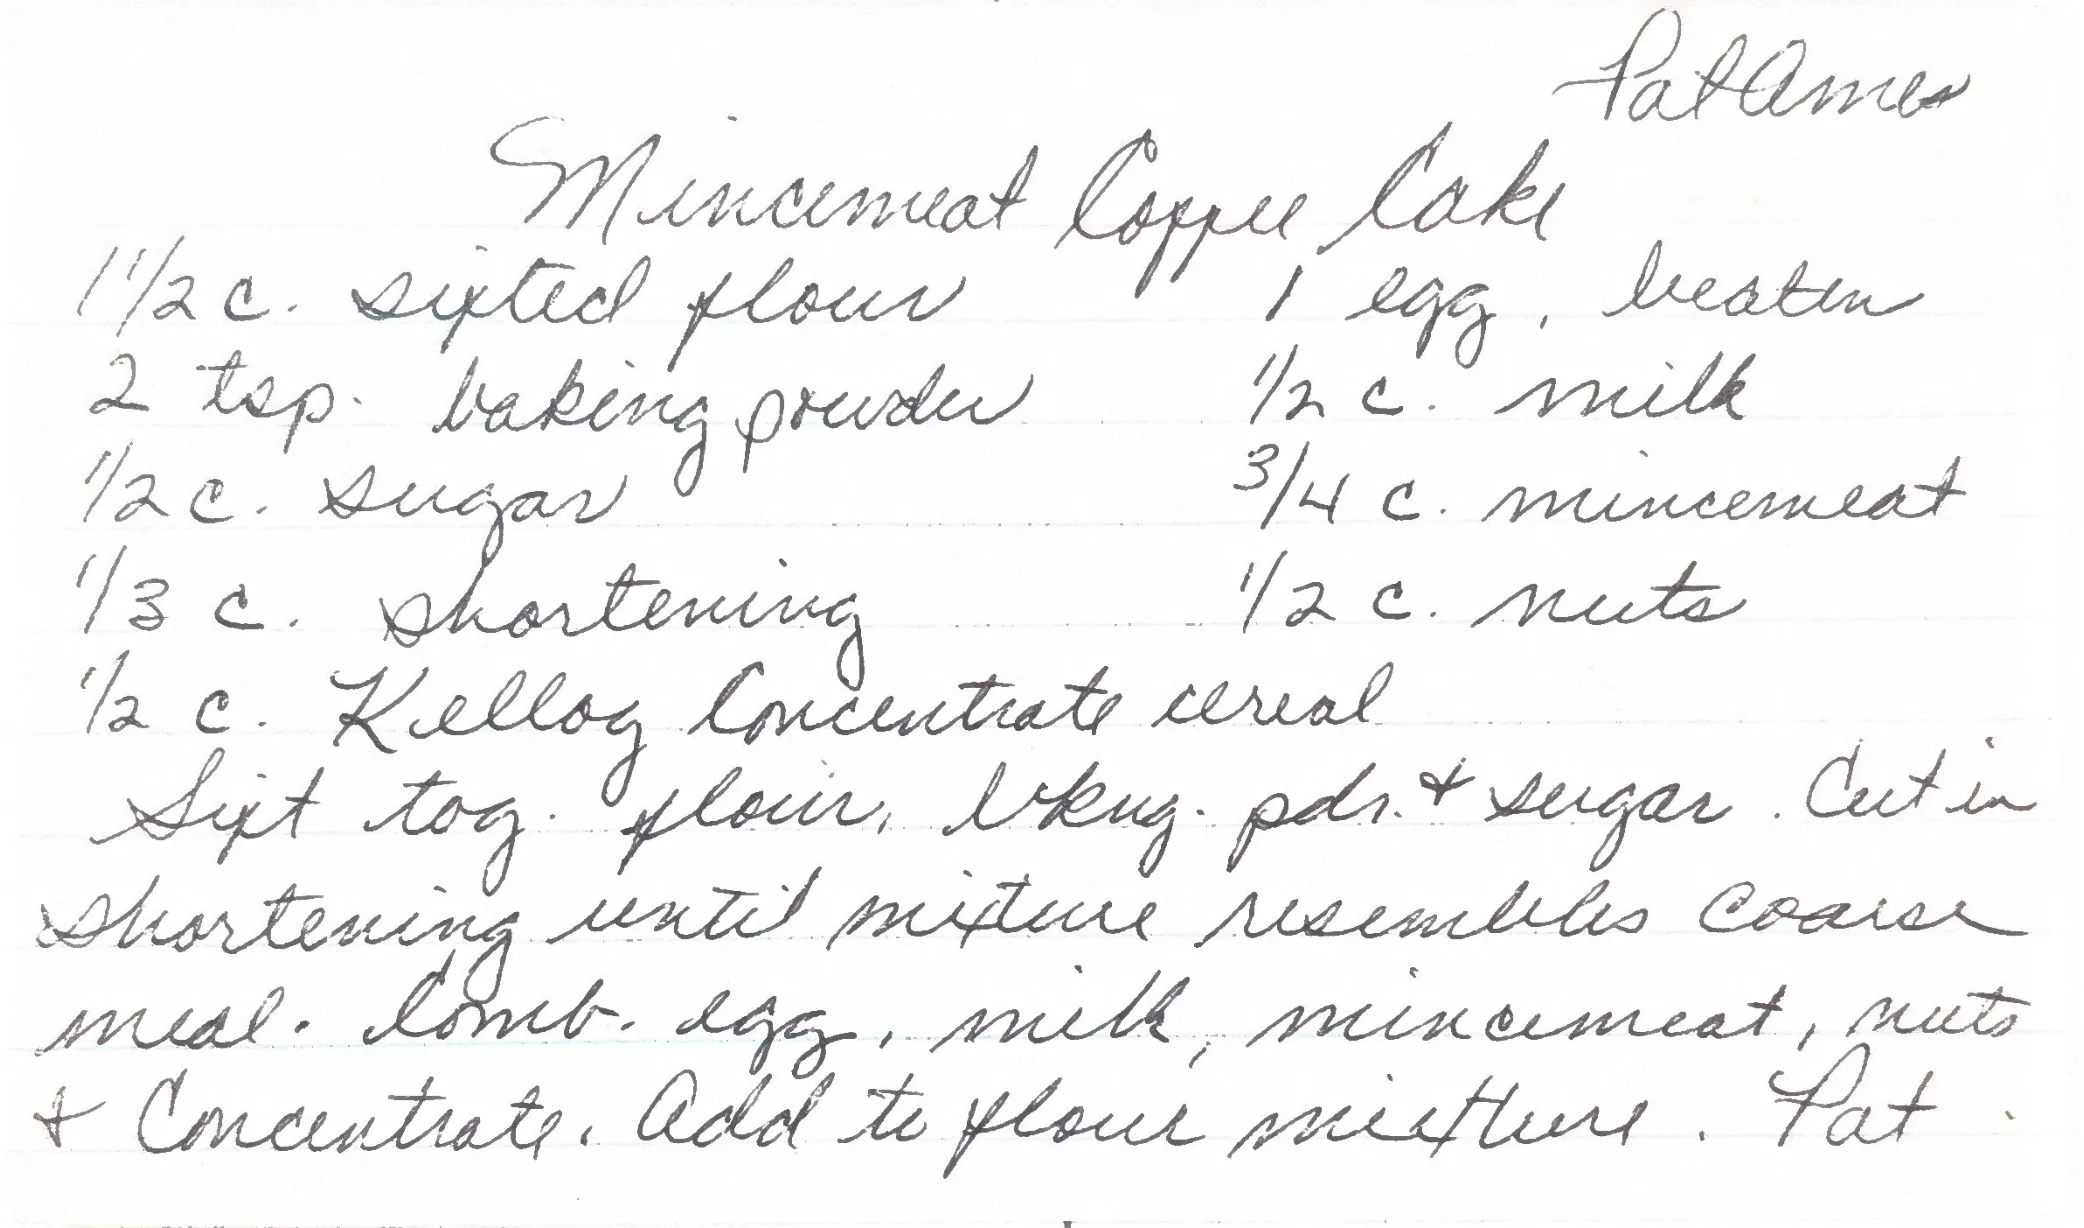 Pat Ames
Mincemeat Coffee Cake
1 1/2 c. sifted flour 1 egg, beaten
2 tsp. baking powder 1/2 c. milk
1/2 c. sugar 3/4 c. mincemeat
1/3 c. shortening 1/2 c. nuts
1/2 c. Kellog Concentrate cereal
Sift tog. flour, bkng. pdr. & sugar. Cut in
shortening until mixture resembles coarse
meal. Comb. egg, milk, mincemeat, nuts
& Concentrate. Add to flour mixture. Pat